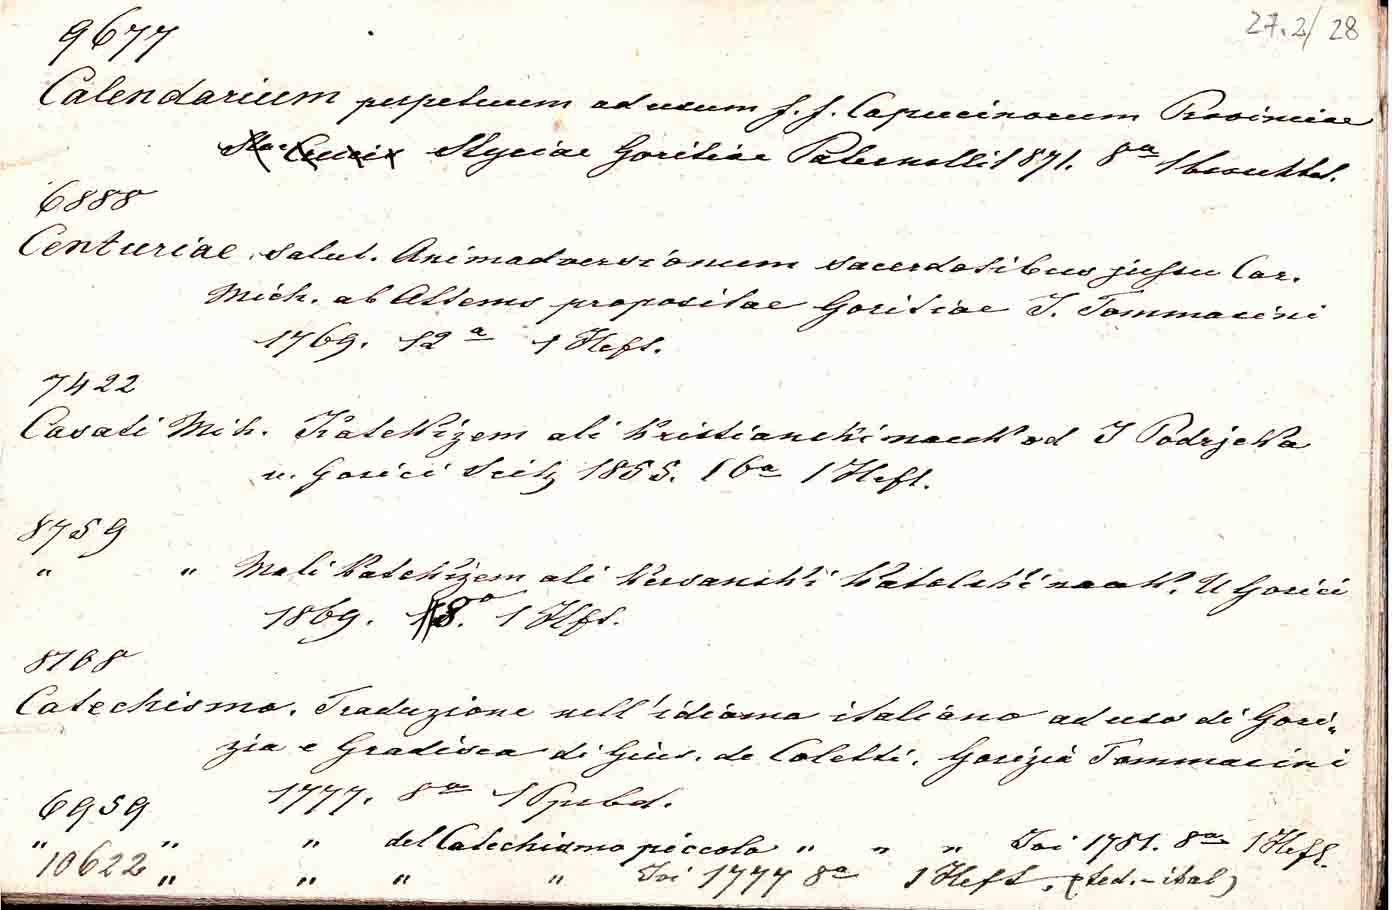 27.2/28
9677
Calendarium perpetuum ad usum f. f. Capucinorum Provinciae
Stae Crucis Styriae Goritiae Paternolli 1871. 8a 1
6888
Centuriae salut. Animadversionum sacerdotibus jussu Car.
Mich. ab Attems propositae Goritiae J. Tommasini
1769. 12a 1 Heft.
7422
Casati Mih. Katekizem ali kristianski nauk od J Podrjeka
v. Gorici Seitz 1855. 16a 1 Heft.
8759
" " Mali katekizem ali kersanski katolski nauk. U Gorici
1869. 18.o 1 Hft.
8768
Catechismo. Traduzione nell'idioma italiano ad uso di Gori„
zia e Gradisca di Gius. de Coletti. Gorizia Tommasini
1777. 8a 1 Ppebd.
6959
" " " del Catechismo piccolo " " " Ivi 1781. 8a 1 Heft.
10622 " " " " Ivi 1777 8a 1 Heft. (ted.-ital)